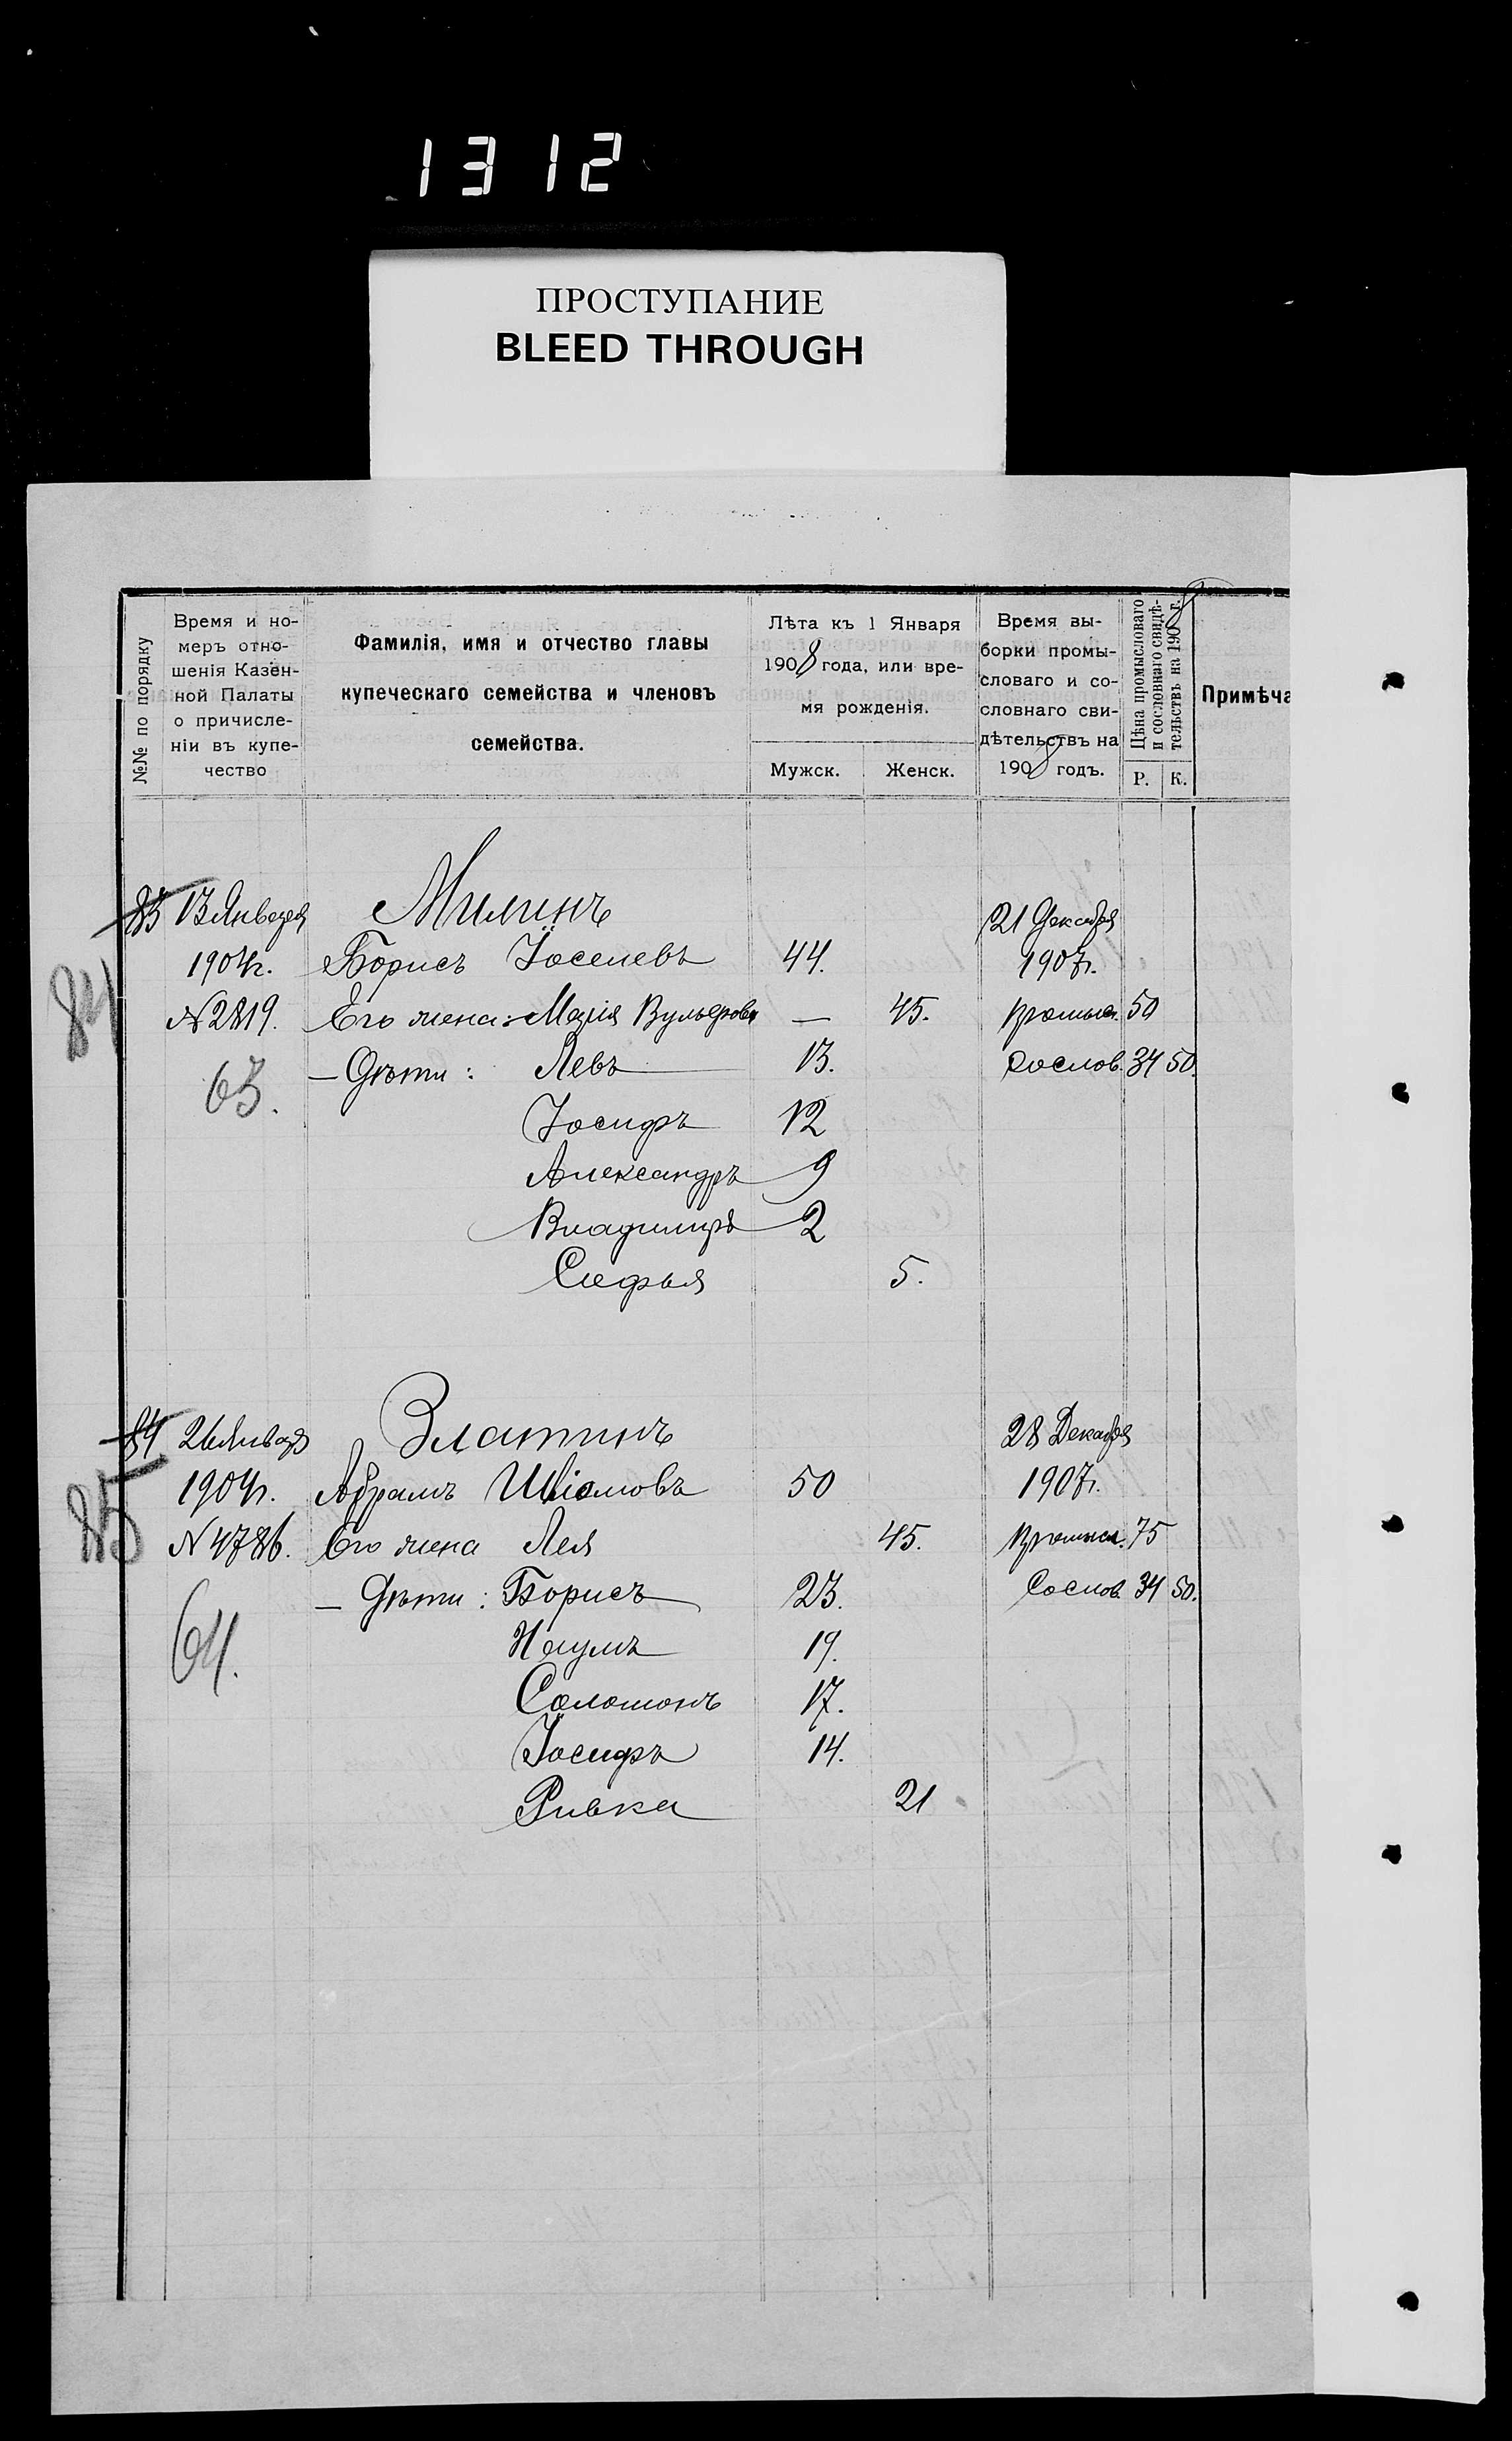 1312
ПРОСТУПАНИЕ
BLEED THROUGH
№№ по порядку
Время и но-
меръ отно-
шенія Казен-
ной Палаты
о причисле-
ніи въ купе-
чество
Фамилія, имя и отчество главы
купеческаго семейства и членовъ
семейства.
Лѣта къ 1 Января
1908 года, или вре-
мя рожденія.
Мужск. Женск.
Время вы-
борки промы-
словаго и со-
словнаго сви-
дѣтельствъ на
1908 годъ.
Цѣна промысловаго
и сословнаго свидѣ-
тельствъ на 1908 г.
Р. К.
Примѣча
83 13 Января Милинъ 21 Декабря
1904г. Борисъ Іоселевъ 44. 1907г.
84 N 2819. Его жена: Марія Вульфовн — 45. Промысл. 50
63. — Дѣти: Левъ 13. Сослов. 34 50.
Іосифъ 12
Александръ 9
Владиміръ 2
Софья 5.
84 26 Января Златинъ 28 Декабря
1904г. Абрамъ Шліомовъ 50 1907г.
85 N 4786. Его жена Лея 45. Промысл. 75
— Дѣти: Борисъ 23. Сослов. 34 50.
64. Наумъ 19.
Соломонъ 17.
Іосифъ 14.
Ривка 21